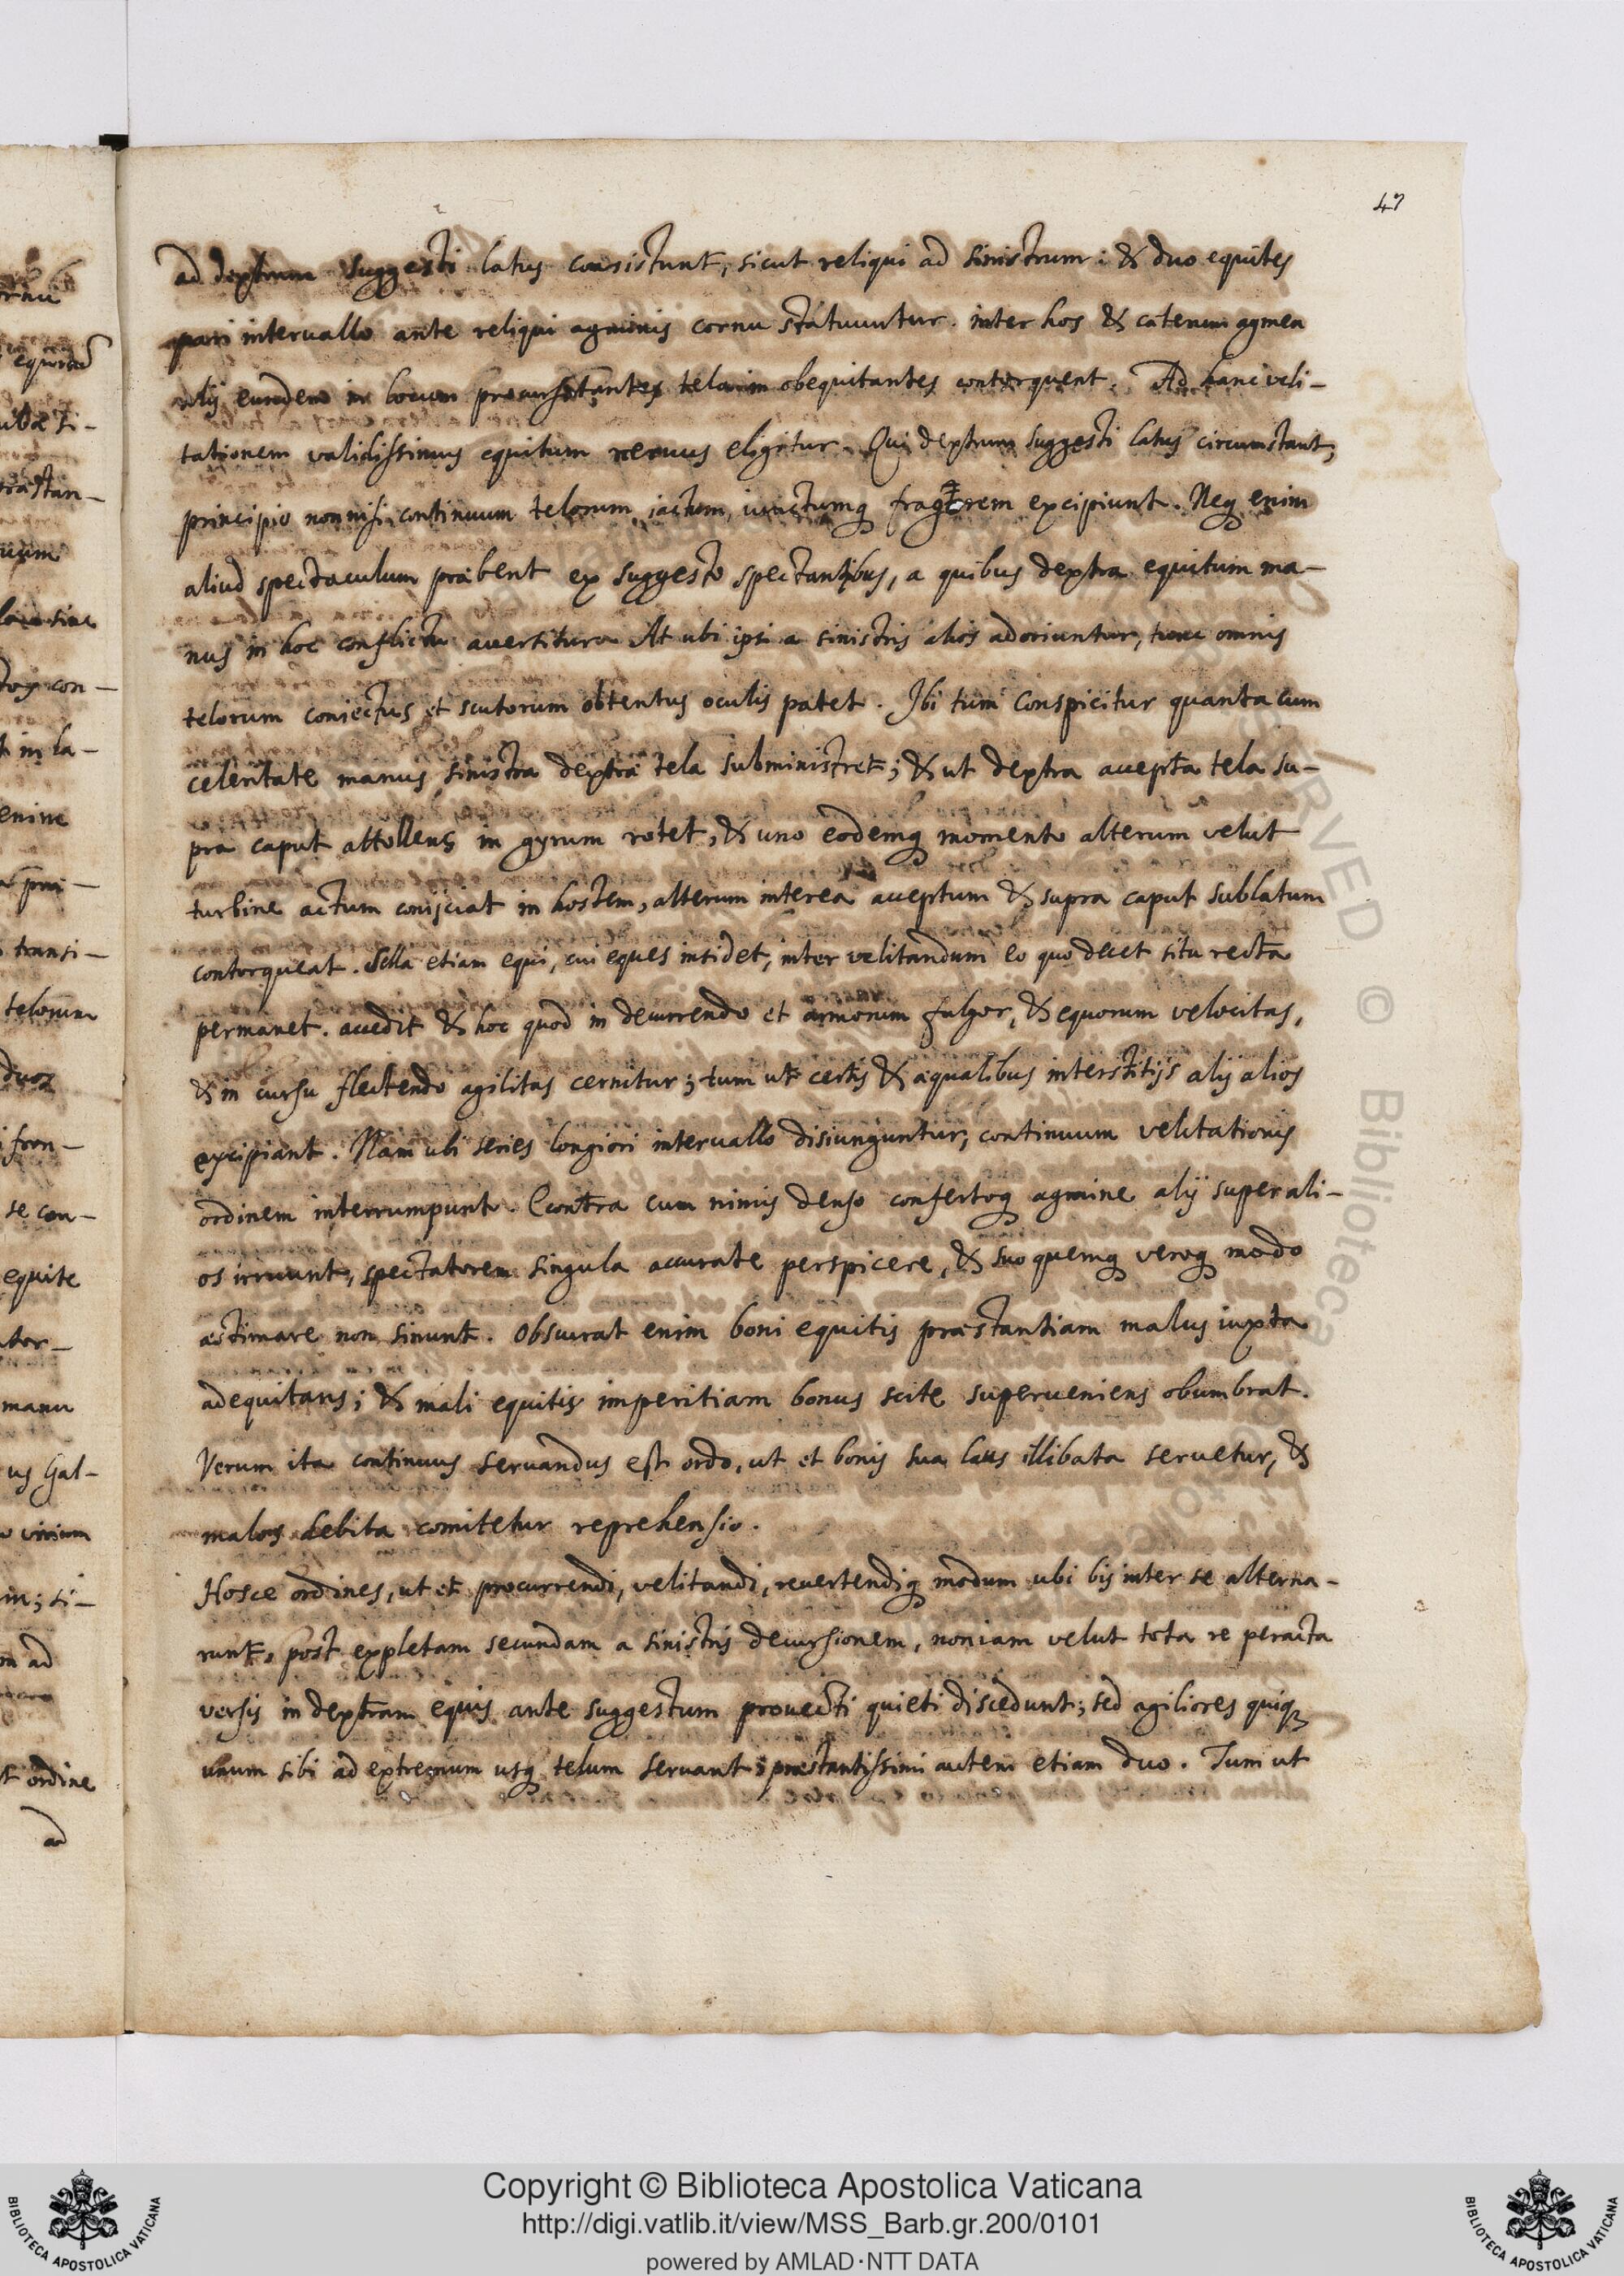 47
ad dextrum suggesti latus consistunt, sicut reliqui ad sinistrum: & duo equites
pari intervallo ante reliqui agminis cornu statuuntur. inter hos & caterum agmen
alij eundem in locum procursitantes telorum obequitantes contorquent. Ad hanc veli-
tationem validissimus equitum nervus eligitur. Qui dextrum suggesti latus circumstant,
principio nonnisi continuum telorum iactum, iunctumq fragorem excipiunt. Neq enim
aliud spectaculum præbent ex suggesto spectantibus, a quibus dextra equitum ma-
nus in hoc conflictu avertitur. At ubi ipsi a sinistris alios adoriuntur, tunc omnis
telorum coniectus et scutorum obtentus oculis patet. Ibi tum conspicitur quanta cum
celeritate manus sinistra dextræ tela subministret; & ut dextra accepta tela su-
pra caput attollens in gyrum rotet, & uno eodemq momento alterum velut
turbine actum conijciat in hostem, alterum interea acceptum & supra caput sublatum
contorqueat. Sella etiam equi, cui eques insidet, inter velitandum eo quo decet situ recta
permanet. accedit & hoc quod in decurrendo et armorum fulgor, & equorum velocitas,
& in cursu flectendo agilitas cernitur; tum ut certis & æqualibus interstitijs alij alios
excipiant. Nam ubi series longiori intervallo disiunguntur, continuum velitationis
ordinem interrumpunt. Contra cum nimis denso confertoq agmine alij super ali-
os irruunt, spectatorem singula accurate perspicere, & suo quemq veroq modo
æstimare non sinunt. Obscurat enim boni equitis præstantiam malus iuxta
adequitans; & mali equitis imperitiam bonus scite superveniens obumbrat.
Verum ita continuus servandus est ordo, ut et bonis sua laus illibata servetur, &
malos debita comitetur reprehensio.
Hosce ordines, ut et procurrendi, velitandi, revertendiq modum ubi bis inter se alterna-
runt, post expletam secundam a sinistris decursionem, non iam velut tota re peracta
versis in dextram equis ante suggestum provecti quieti discedunt; sed agiliores quiq
unum sibi ad extremum usq telum servant; præstantissimi autem etiam duo. Tum ut
Copyright © Biblioteca Apostolica Vaticana
http://digi.vatlib.it/view/MSS_Barb.gr.200/0101
powered by AMLAD·NTT DATA
BIBLIOTECA APOSTOLICA VATICANA
BIBLIOTECA APOSTOLICA VATICANA